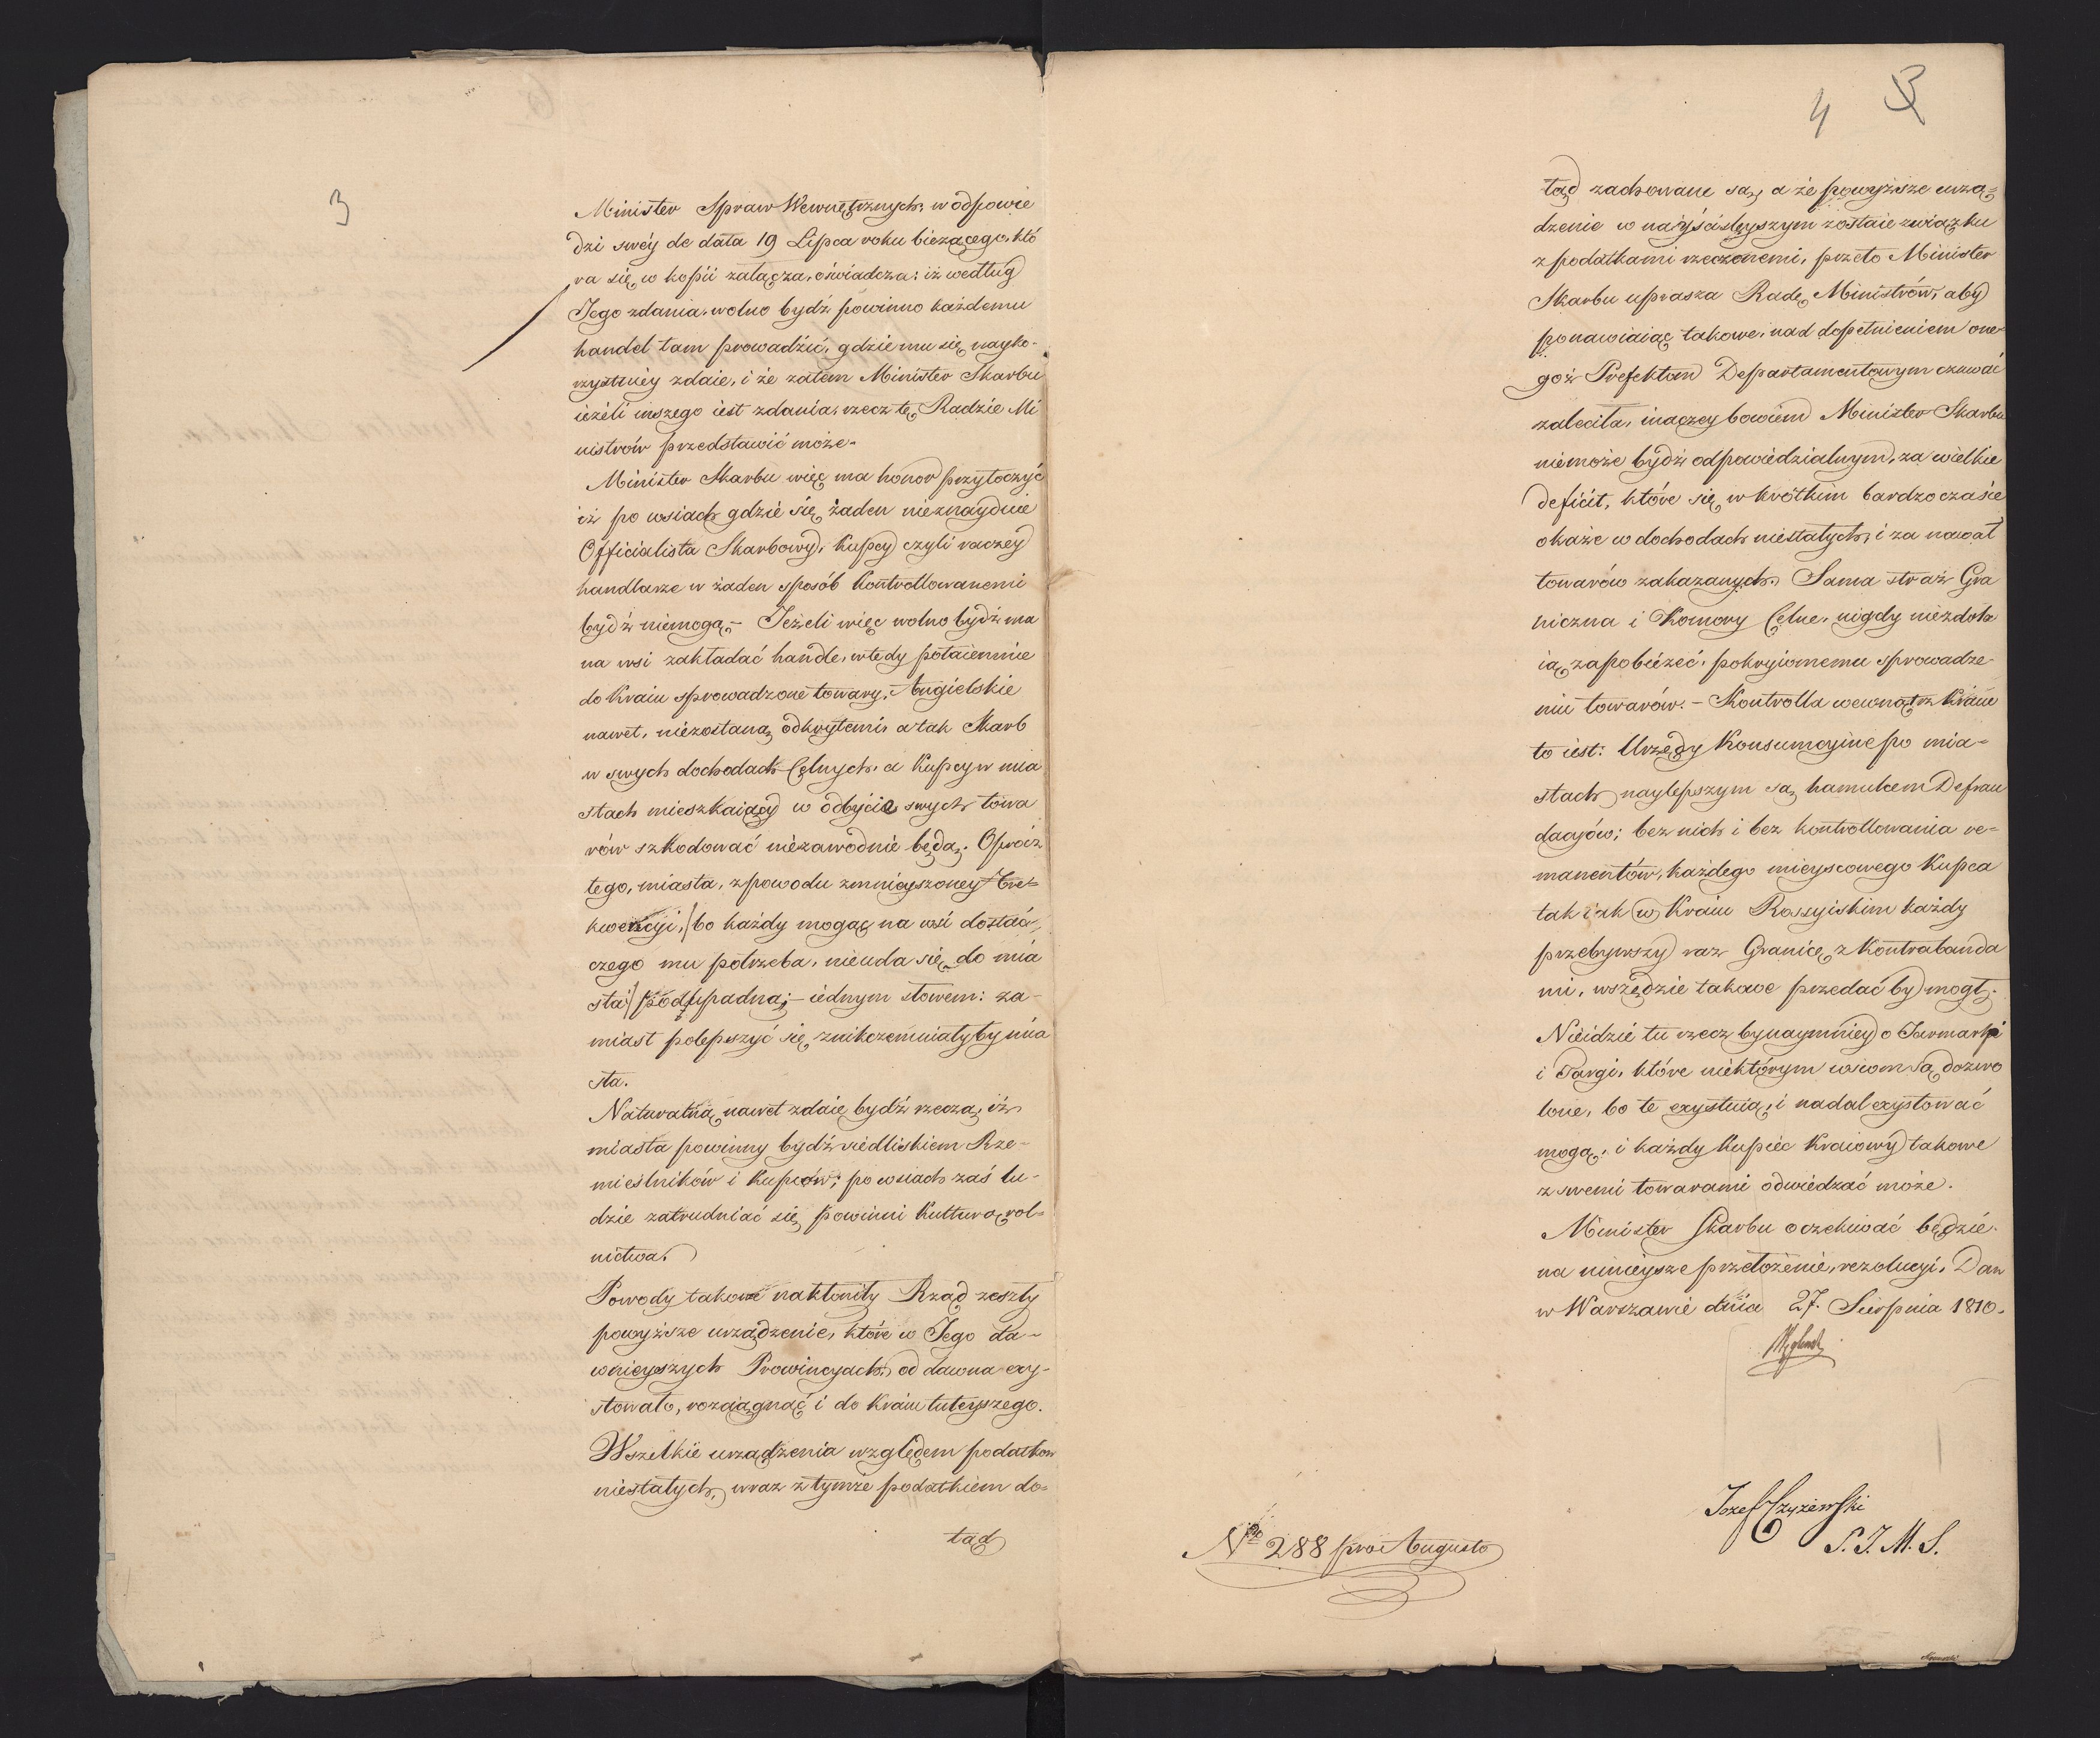 3
Minister Spraw Wewnętrznych, w odpowie
dzi swéy de data 19 Lipca roku bieżącego, któ
ra się w kopii załącza, oświadcza: iż według
Jego zdania, wolno bydź powinno każdemu
handel tam prowadzić, gdzie mu się nayko-
rzystniéy zdaie, i że zatem Minister Skarbu
ieżeli inszego iest zdania, rzecz tę Radzie Mi
nistrów przedstawić może.
Minister Skarbu więc ma honor przytoczyć
iż po wsiach gdzie się żaden nieznayduie
Officialista Skarbowy, Kupcy czyli raczey
handlarze w żaden sposób kontrollowanemi
bydź niemogą. - Jeżeli więc wolno bydź ma
na wsi zakładać handle, wtedy potaiemnie
do Kraiu sprowadzone towary, Angielskie
nawet, niezostaną odkrytemi, a tak Skarb
w swych dochodach Celnych, a Kupcy w mia
stach mieszkaiący w odbyciu swych towa
rów szkodować niezawodnie będą. Oprócz
tego, miasta, z powodu zmnieyszoney Fre-
kwencyi, /bo każdy mogąc na wsi dostać,
czego mu potrzeba, nieuda się do mia
sta/ podupadną; - iednym słowem: za-
miast polepszyć się, znikczemniałyby mia
sta.
Naturalną nawet zdaie bydź rzeczą, iż
miasta powinny bydź siedliskiem Rze-
mieślników i Kupców; po wsiach zaś lu-
dzie zatrudniać się powinni Kulturą rol-
nictwa.
Powody takowe nakłoniły Rząd zeszły
powyższe urządzenie, które w Jego da-
wnieyszych Prowincyach od dawna exy-
stowało, rozciągnąć i do Kraiu tuteyszego.
Wszelkie urządzenia względem podatków
niestałych, wraz z tymże podatkiem do-
tąd
4 3
tąd zachowane są, a że powyższe urzą-
dzenie w nayściśleyszym zostaie związku
z podatkami rzeczonemi, przeto Minister
Skarbu uprasza Radę Ministrów, aby
ponawiaiąc takowe, nad dopełnieniem one-
goż Prefektom Departamentowym czuwać
zaleciła, inaczey bowiem Minister Skarbu
niemoże bydź odpowiedzialnym, za wielkie
deficit, które się w krótkim bardzo czasie
okaże w dochodach niestałych, i za nawał
towarów zakazanych. Sama straż Gra
niczna i Komory Celne, nigdy niezdoła
ią zapobieżeć, pokryiomemu sprowadze
niu towarów. - Kontrolla wewnątrz Kraiu
to iest: Urzędy Konsumcyine po mia-
stach naylepszym są hamulcem Defrau
dacyów; bez nich i bez kontrollowania re-
manentów, każdego mieyscowego Kupca
tak iak w Kraiu Rossyiskim każdy
przebywszy raz Granicę z Kontrabanda
mi, wszędzie takowe przedać by mogł.
Nieidzie tu rzecz bynaymniey o Jarmarki
i Targi, które niektórym wsiom są dozwo
lone, bo te exystuią, i nadal exystować
mogą, i każdy Kupiec Kraiowy takowe
z swemi towarami odwiedzać może.
Minister Skarbu oczekiwać będzie
na ninieysze przełożenie, rezolucyi. Dan
w Warszawie dnia 27. Sierpnia 1810.
Józef Czyżewski
S. J. M. S.
No 288 pro Augusto